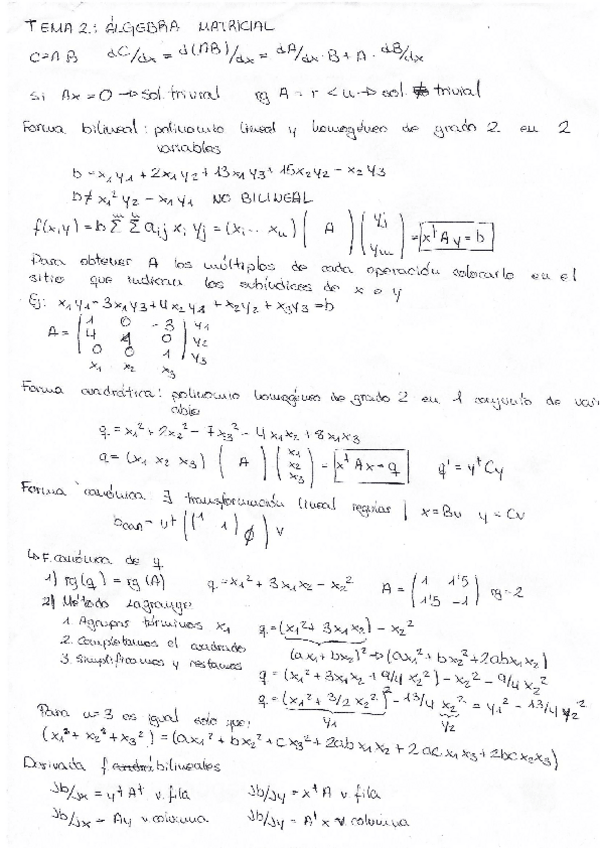 TEMA 2: ÁLGEBRA MATRICIAL
C=AB dC/dx = d(AB)/dx = dA/dx · B + A · dB/dx
Si Ax=0 → sol. trivial rg A = r < n → sol. trivial
Forma bilineal: polinomio lineal y homogéneo de grado 2 en 2
variables
b = x1y1 + 2x1y2 + 13x1y3 + 15x2y2 - x2y3
b ≠ x1²y2 - x1y1 NO BILINEAL
f(x,y) = b Σ Σ aij xi yj = (xi ... xn) ( A ) (yj ym) = x^t A y = b
Para obtener A los múltiplos de cada operación colocarlo en el
sitio que indican los subíndices de x e y
Ej: x1y1 - 3x1y3 + 4x2y1 + x2y2 + x3y3 = b
A = ( 1 0 -3 ) y1
4 1 0 y2
0 0 1 y3
x1 x2 x3
Forma cuadrática: polinomio homogéneo de grado 2 en 1 conjunto de vari
able
q = x1² + 2x2² - 7x3² - 4x1x2 + 8x1x3
q = (x1 x2 x3) ( A ) (x1 x2 x3) = x^t A x = q q' = y^t C y
Forma canónica ∃ transformación lineal regular | x = Bu y = Cv
bcan = u^t ( (1 1) ∅ ) v
↳ F. canónica de q
1) rg(q) = rg(A) q = x1² + 3x1x2 - x2² A = ( 1 1'5 1'5 -1 ) rg = 2
2) Método Lagrange
1. Agrupar términos x1 q = (x1² + 3x1x2) - x2²
2. Completamos el cuadrado (ax1 + bx2)² → (ax1² + bx2² + 2abx1x2)
3. Simplificamos y restamos q = (x1² + 3x1x2 + 9/4 x2²) - x2² - 9/4 x2²
q = (x1² + 3/2 x2²)² - 13/4 x2² = y1² - 13/4 y2²
y1 y2
Para n=3 es igual solo que:
(x1² + x2² + x3²) = (ax1² + bx2² + cx3² + 2abx1x2 + 2acx1x3 + 2bcx2x3)
Derivada f. bilineales
∂b/∂x = y^t A^t v. fila ∂b/∂y = x^t A v fila
∂b/∂x = Ay v columna ∂b/∂y = A^t x v columna